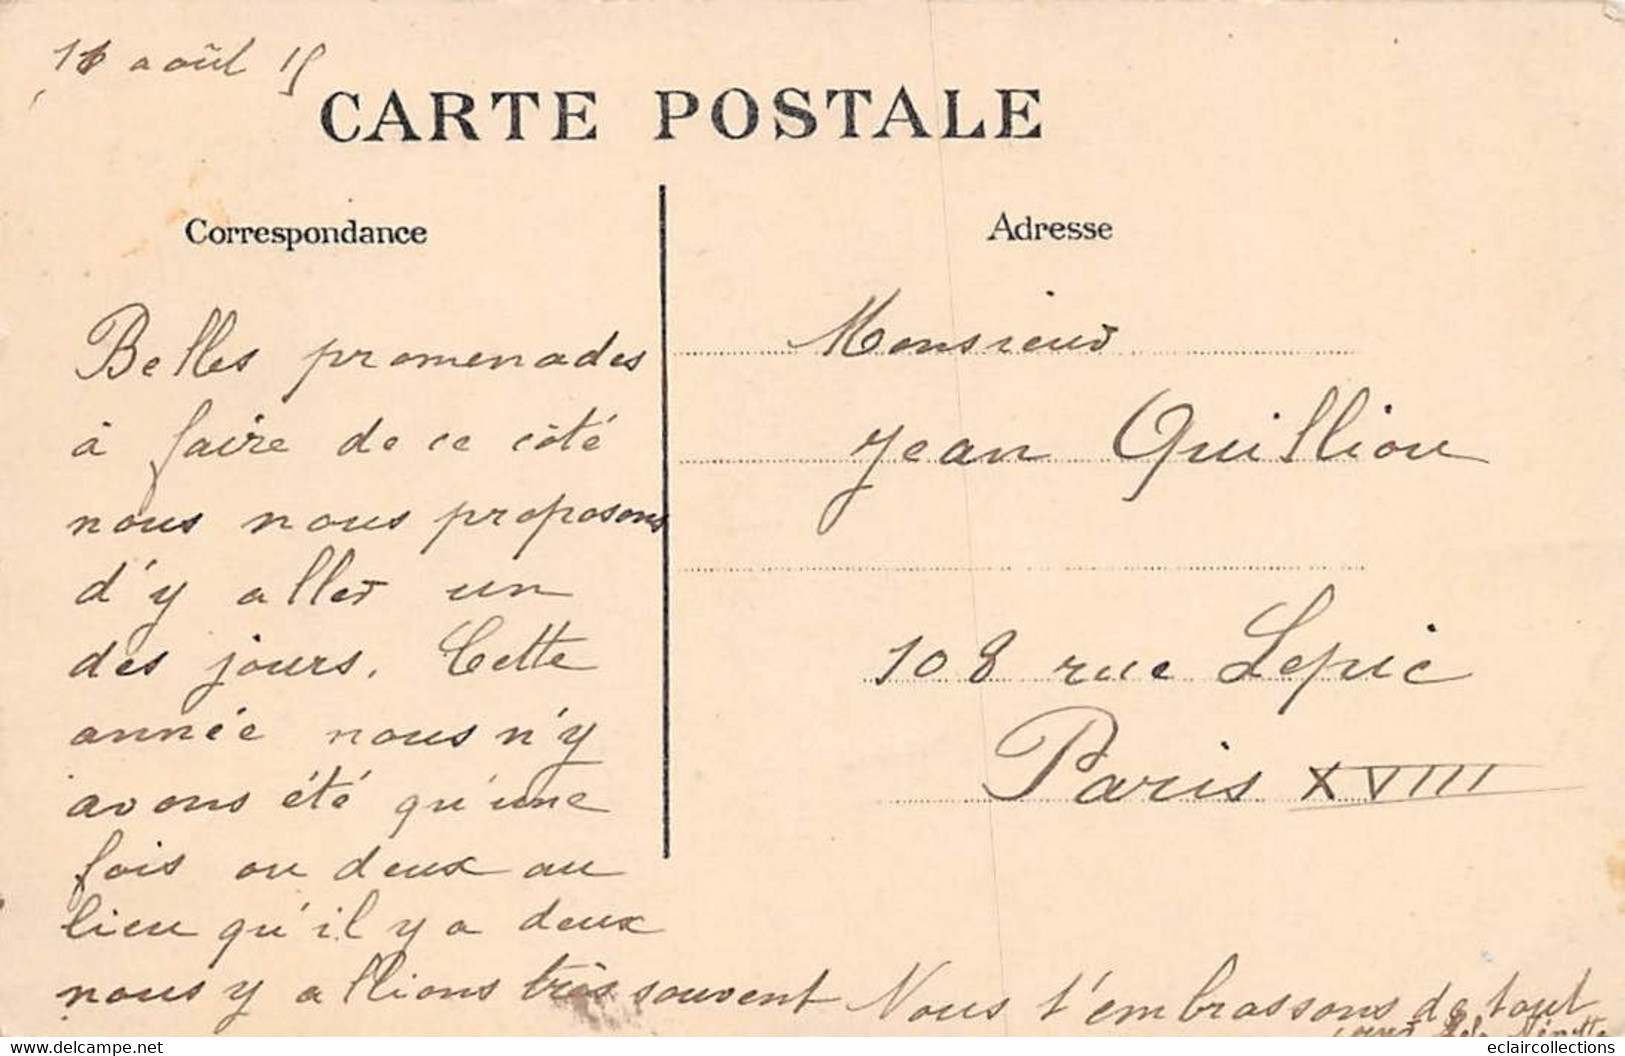 août 15
CARTE POSTALE
Correspondance
Adresse
Belles promenades
à faire de ce côté
nous nous proposons
d'y aller un
des jours. Cette
année nous n'y
avons été qu'une
fois ou deux au
lieu qu'il y a deux
nous y allions très souvent Nous t'embrassons de tout
Monsieur
Jean Quilliou
108 rue Lepic
Paris XVIII
www.delcampe.net
eclaircollections